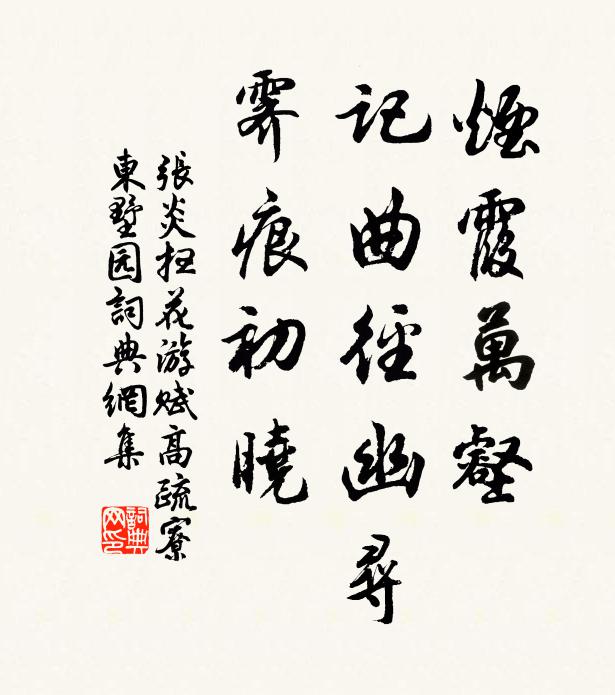 煙霞萬壑
記曲徑幽尋
霽痕初曉
張炎扭花游賦高疏寮
東墅园詞典網集
詞典
网印